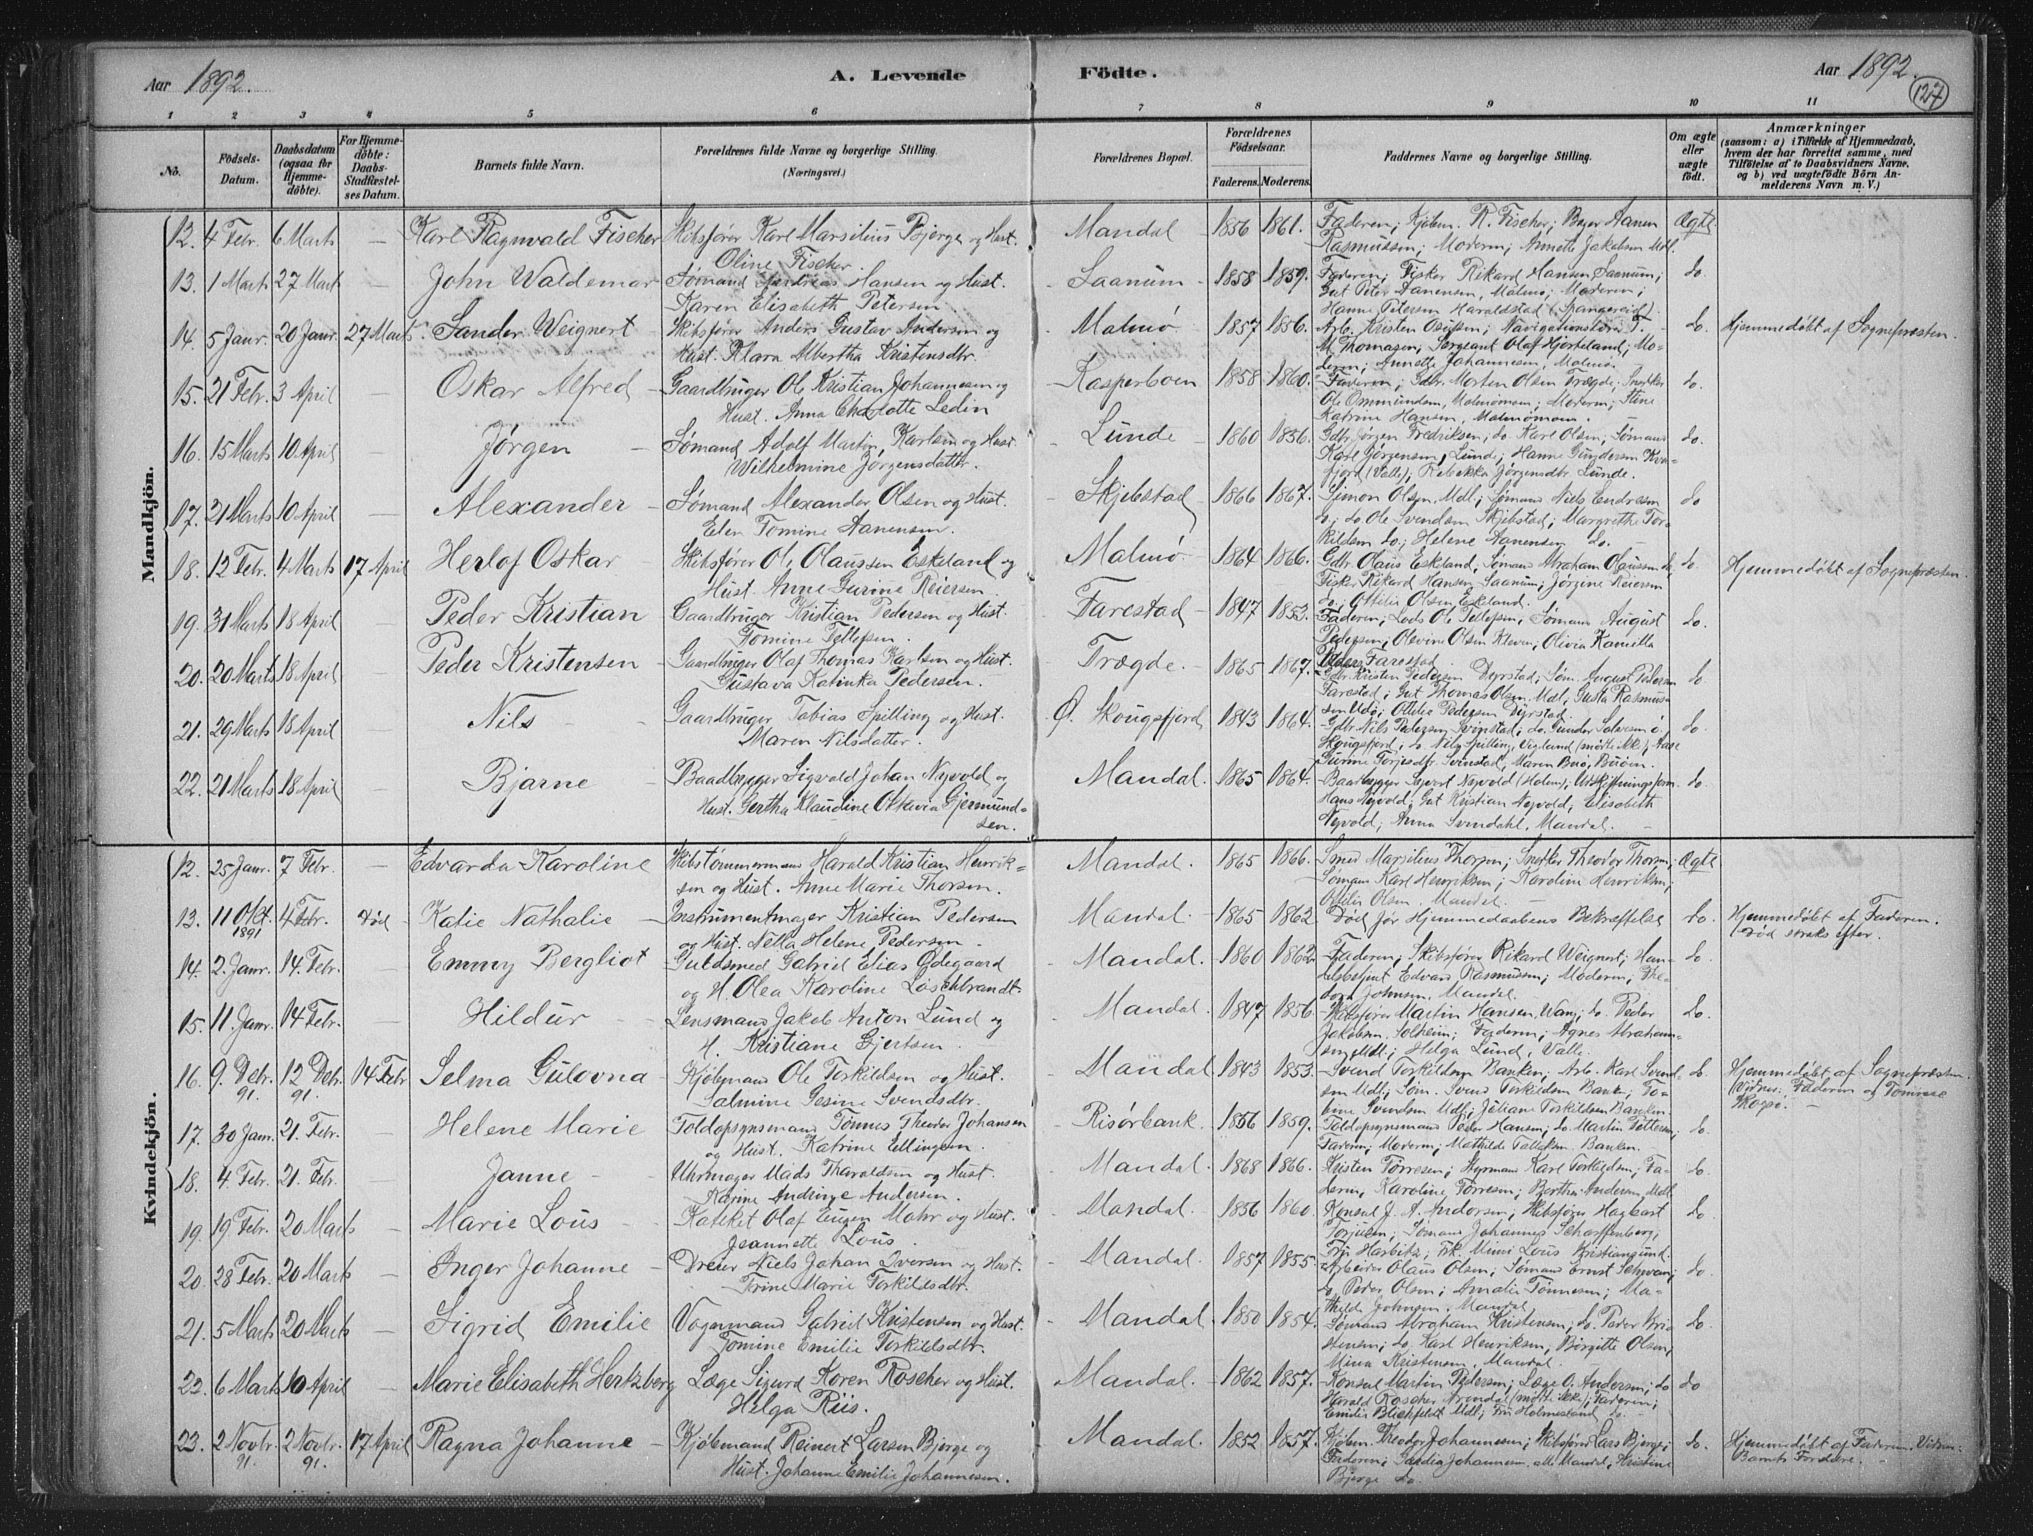 Aar 1892.
A. Levende
Födte.
Aar 1892.
127
1 2 3 4 5 6 7 8 9 10 11
No.
Födsels-Datum.
Daabsdatum (ogsaa for Hjemme-döbte).
For Hjemme-döbte: Daabs-Stadfæstel-ses Datum.
Barnets fulde Navn.
Forældrenes fulde Navne og borgerlige Stilling. (Næringsvei.)
Forældrenes Bopæl.
Forældrenes Födselsaar.
Faderens. Moderens.
Faddernes Navne og borgerlige Stilling.
Om ægte eller uægte födt.
Anmærkninger
(saasom: a) i Tilfælde af Hjemmedaab, hvem der har forrettet samme, med Tilføielse af to Daabsvidners Navne, og b) ved uægtefödte Börn An-melderens Navn m. V.)
Mandkjön.
12. 4 Febr. 6 Marts — Karl Ragnvald Fischer Skibsfører Karl Marsilius Bjerge og Hust. Oline Fischer Mandal 1856 1861. Faderen; Kjøbm. R. Fischer; Bager Aanen Rasmussen; Moderen; Annette Jakobsen Mdl. Ægte
13. 1 Marts 27 Marts — John Waldemar Sømand Andreas Hansen og Hust. Karen Elisabeth Petersen Saanum 1858 1859. Faderen; Fisker Rikard Hansen Saanum; Gut Peter Aanensen, Malmø; Moderen; Hanne Petersen Haraldstad (Spangereid). do.
14. 5 Janr. 20 Janr. 27 Marts Sander Weignert Skibsfører Anders Gustav Andersen og Hust. Klara Albertha Kristensdtr. Malmø 1857 1856. Arb. Kristen Osufsen; Navigationslærer T. M. Thomasen; Sergeant Olaf Hjorteland; Moderen; Annette Johannesen, Malmø. do. Hjemmedøbt af Sognepræsten.
15. 21 Febr. 3 April — Oskar Alfred Gaardbruger Ole Kristian Johannesen og Hust. Anna Charlotte Ledin Kasperboen 1858 1860. Faderen; Gdbr. Morten Olsen Trægde; Snedker Ole Ommundsen, Malmømoen; Moderen; Stine Katrine Hansen, Malmømoen. do.
16. 15 Marts 10 April — Jørgen Sømand Adolf Martin Karlsen og Hust. Wilhelmine Jørgensdatter. Lunde 1860 1856. Gdbr. Jørgen Fredriksen; do. Karl Olsen, Sømand Karl Jørgensen, Lunde; Hanne Gundersen (Valle); Rebekka Jørgensdtr. Lunde. do.
17. 21 Marts 10 April — Alexander Sømand Alexander Olsen og Hust. Elen Tomine Aanensen. Skjebstad 1866 1867. Simon Olsen, Mdl.; Sømand Niels Endresen do; do. Ole Svendsen Skjebstad; Margrethe Torkildsen do; Helene Aanensen do. do
18. 12 Febr. 4 Marts 17 April Herlof Oskar Skibsfører Ole Olaussen Eskeland og Hust. Anne Gurine Reiersen. Malmø 1864 1866. Gdbr. Olaus Eskeland, Sømand Abraham Olaussen do, Fisker Rikard Hansen Saanum; Jørgine Reiersen do, Ottilie Olsen Eskeland. do. Hjemmedøbt af Sognepræsten.
19. 31 Marts 18 April — Peder Kristian Gaardbruger Kristian Pedersen og Hust. Tomine Tellefsen. Farestad 1847 1853. Faderen; Lods Ole Tellefsen; Sømand August Pedersen; Olevine Olsen Kleven; Olivia Kamilla Farestad. do.
20. 20 Marts 18 April — Peder Kristensen Gaardbruger Olaf Thomas Karlsen og Hust. Gustava Katinka Pedersen. Trægde. 1865 1867. Gdbr. Kristen Pedersen Dyrstad; Søm. August Pedersen Farestad; Gut Thomas Olsen, Mdl; Gusta Rasmussen Udø; Ottilie Pedersen Dyrstad. do.
21. 29 Marts 18 April — Nils Gaardbruger Tobias Spilling og Hust. Maren Nilsdatter. Ø. Skougsfjord 1843 1864. Gdbr. Nils Pedersen Svinstad; do. Gunder Salvesen Ø. Skougsfjord, do. Nils Spilling, Vigland (mødte ikke); Aase Gurine Torjesdtr. Svinstad, Maren Buø, Buøen. do.
22. 21 Marts 18 April — Bjarne Baadbygger Sigvald Johan Nyvold og Hust. Gertha Klaudine Oktavia Gjermundsen. Mandal. 1865 1864. Baadbygger Sivert Nyvold (Holum); Udskiftningsform. Hans Nyvold; Gut Kristian Nyvold; Elisabeth Nyvold; Anna Svendahl, Mandal. do.
Kvindekjön.
12. 25 Janr. 7 Febr. — Edvarda Karoline Skibstømmermand Harald Kristian Henriksen og Hust. Anne Marie Thorsen. Mandal. 1865 1866. Smed Marsilius Thorsen; Snedker Theodor Thorsen; Sømand Karl Henriksen; Karoline Henriksen; Ottilie Olsen. Mandal. Ægte
13. 11 Okt. 1891 4 Febr. død Katie Nathalie Instrumentmager Kristian Pedersen og Hust. Nella Helene Pedersen. Mandal 1865 1862 Død før Hjemmedaabens Bekræftelse do. Hjemmedøbt af Faderen. Død straks efter.
14. 2 Janr. 14. Febr. — Emmy Bergliot Guldsmed Gabriel Elias Ødegaard og H. Olea Karoline Loschbrandt. Mandal. 1860 1862 Faderen; Skibsfører Rikard Weignert; Handelsbetjent Edvard Rasmussen; Moderen; Theodora Johnsen, Mandal. do.
15. 11. Janr. 14 Febr. — Hildur Lensmand Jakob Anton Lund og H. Kristiane Gjertsen. Mandal. 1847 1856. Skibsfører Martin Hansen Wang; do. Peder Jakobsen Solheim; Faderen; Agnes Abrahamsen Mdl.; Helga Lund, Valle. do.
16. 9. Debr. 91. 12 Debr. 91. 14 Febr Selma Gulovna Kjøbmand Ole Torkildsen og Hust. Salmine Gesine Svendsdtr. Mandal. 1843 1853. Svend Torkildsen Banken; Arb. Karl Svendsen Mdl.; Søm. Svend Torkildsen Banken; Tobine Svendsen Mdl.; Juliane Torkildsen Banken. do. Hjemmedøbt af Sognepræsten. (Vidner: Faderen og Tomine Skogsø.
17. 30 Janr. 21. Febr. — Helene Marie Toldopsynsmand Tønnes Theodor Johansen og Hust. Katrine Ellingsen. Risørbank. 1856 1859. Toldopsynsmand Peder Hansen; do. Martin Tøttersen; Faderen; Moderen; Mathilde Tallaksen Banken. do.
18. 4 Febr. 21. Febr. — Janne Uhrmager Mads Tharaldsen og Hust. Karine Andrine Andersen. Mandal. 1868 1866. Kristen Tørresen; Styrmand Karl Torkildsen; Faderen, Karoline Tørresen; Bertha Andersen Mdl. do.
19. 19 Febr. 20 Marts — Marie Lous Kateket Olaf Eugen Mohr og Hust. Jeannette Lous. Mandal. 1856 1860. Konsul J. A. Andorsen; Skibsfører Hagbart Torjusen; Sømand Johannes Scharffenberg; Frk. Harbitz; Frk. Mimi Lous Kristiansund. do.
20. 28 Febr. 20 Marts — Inger Johanne Dreier Niels Johan Iversen og Hust. Trine Marie Torkildsdtr. Mandal. 1857 1855. Arbeider Olaus Olsen; Sømand Ernst Schwan; do. Peder Olsen; Amalie Tønnesen; Mathilde Johnsen, Mandal do.
21. 5 Marts 20 Marts — Sigrid Emilie Vognmand Gabriel Kristensen og Hust. Tomine Emilie Torkildsdtr. Mandal. 1850 1854. Sømand Abraham Kristensen; do. Peder Kristensen; do. Karl Henriksen, Børgitte Olsen, Mina Kristensen, Mandal. do.
22. 6 Marts 10 April — Marie Elisabeth Hertzberg Læge Sigurd Koren Roscher og Hust. Helga Riis. Mandal. 1862 1857. Konsul Martin Pedersen; Læge O. Andersen; do Harald Roscher Arendal (mødt. ikke); Faderen; Emilie Blichfeldt Mdl; Fru Holmestrand do. do
23. 2 Novbr. 91. 2 Novbr. 91. 17 April Ragna Johanne Kjøbmand Reinert Larsen Bjerge og Hust. Johanne Emilie Johannesen. Mandal. 1852 1857. Kjøbm. Theodor Johannesen; Skibsfører Lars Bjerge; Faderen; Johannesen, alle Mandal; Kristine Bjerge do. do. Hjemmedøbt af Faderen. Vidner: Barnets Forældre.